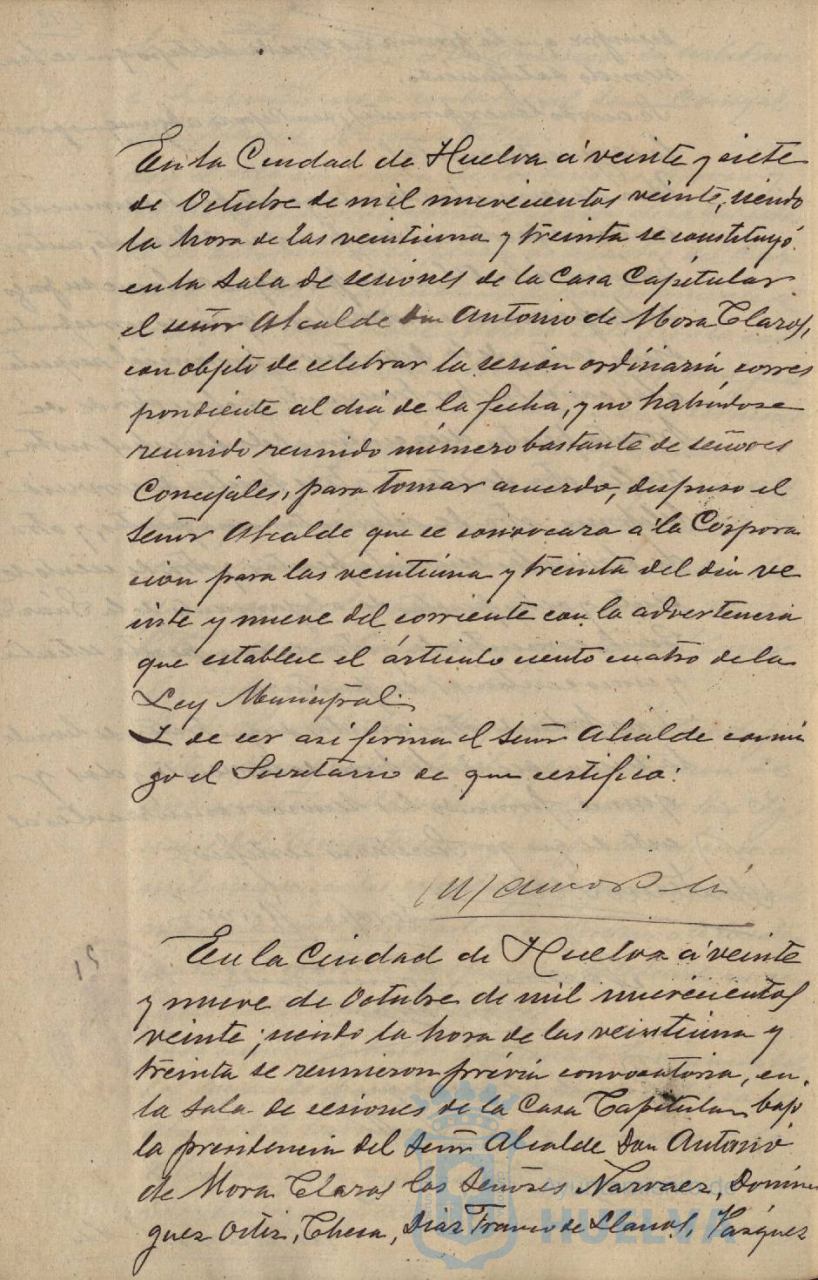 En la Ciudad de Huelva á veinte y siete
de Octubre de mil nuevecientos veinte, siendo
la hora de las veintiuna y treinta se constituyó
en la Sala de sesiones de la Casa Capitular
el señor Alcalde Don Antonio de Mora Claros,
con objeto de celebrar la sesión ordinaria corres
pondiente al día de la fecha, y no habiéndose
reunido reunido número bastante de señores
Concejales, para tomar acuerdo, dispuso el
Señor Alcalde que se convocara a la Corpora
ción para las veintiuna y treinta del día ve
inte y nueve del corriente con la advertencia
que establece el artículo ciento cuatro de la
Ley Municipal.
Y de ser así firma el Señor Alcalde conmi
go el Secretario de que certifico:
En la Ciudad de Huelva á veinte
y nueve de Octubre de mil nuevecientos
veinte; siendo la hora de las veintiuna y
treinta se reunieron prévia convocatoria, en
la Sala de sesiones de la Casa Capitular, bajo
la presidencia del Señor Alcalde Don Antonio
de Mora Claros los Señores Narvaez, Domin
guez Ortiz, Checa, Diaz Franco de Llanos, Vazquez
HUELVA